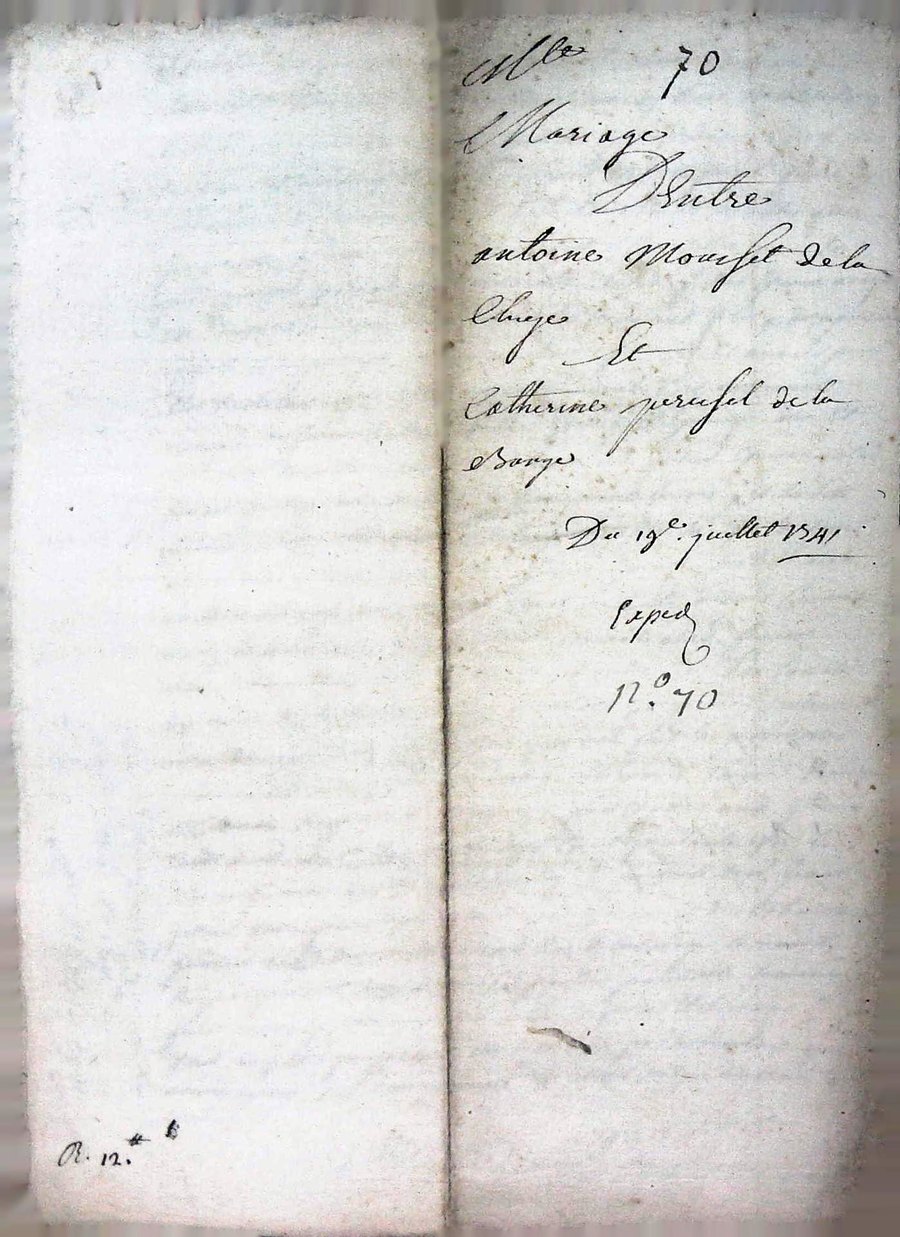 70
Mariage
D'Entre
antoine Mousset de la
Et
Catherine perussel de la
Barge
Du 19e. juillet 1741
Exped
n.o 70
R. 12.